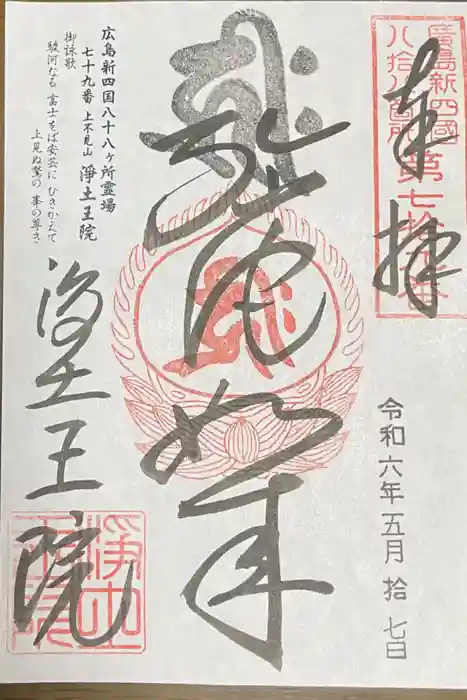 廣島新四國
八拾八箇所第七拾九番
奉拝
令和六年五月拾七日
弥陀如来
広島新四国八十八ヶ所霊場
七十九番 上不見山 浄土王院
御詠歌
駿河なる 富士をば安芸に ひきかえて
上見ぬ鷲の 峯の尊さ
浄土王院
浄土王院